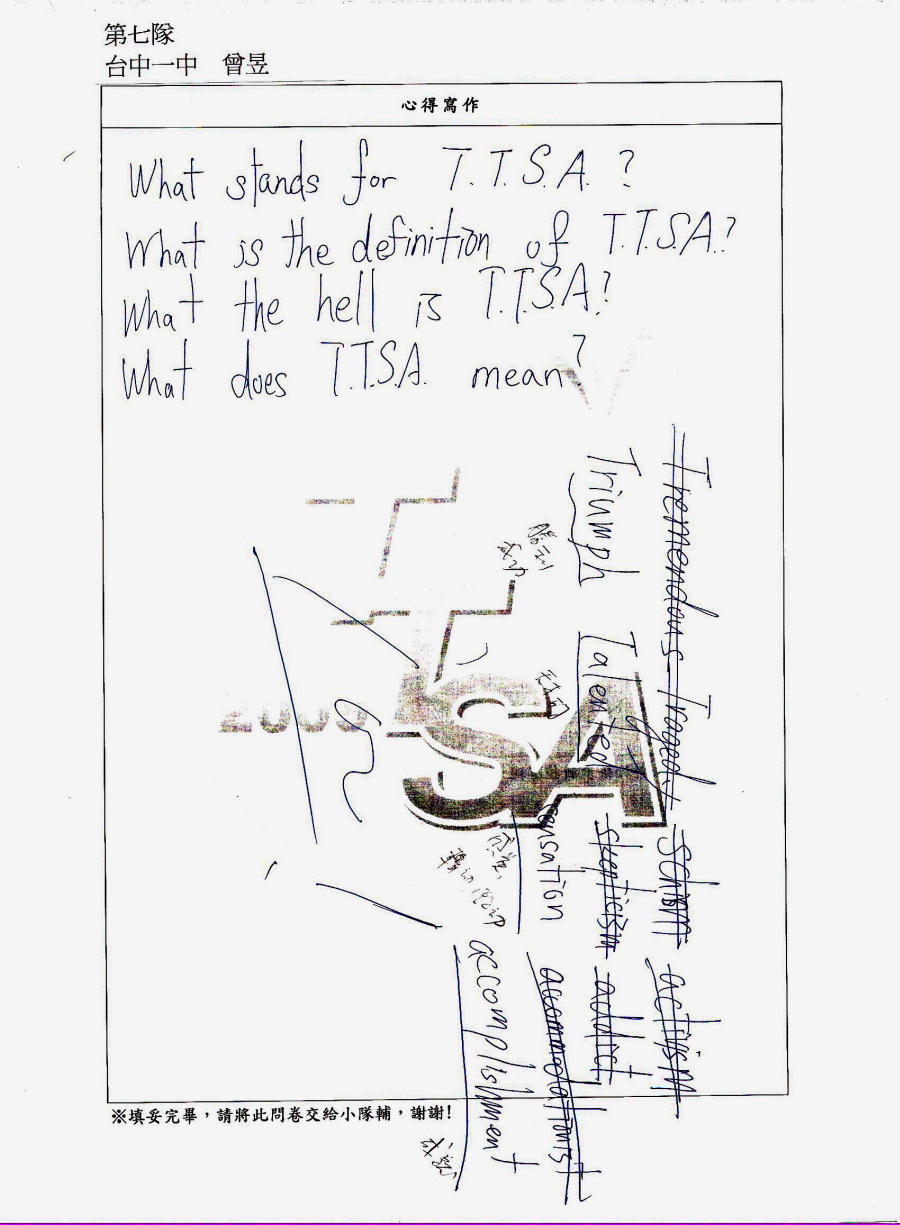 第七隊
台中一中 曾昱
心得寫作
What stands for T.T.S.A. ?
What is the definition of T.T.S.A.?
What the hell is T.T.S.A?
What does T.T.S.A. mean?
Tremendous Tragedy schism activism
Triumph Talented Skepticism addict
勝利
成功
天才的
sensation accommodationist
轟動
accomplishment
成就
2005
T
T
SA
※填妥完畢,請將此問卷交給小隊輔,謝謝!